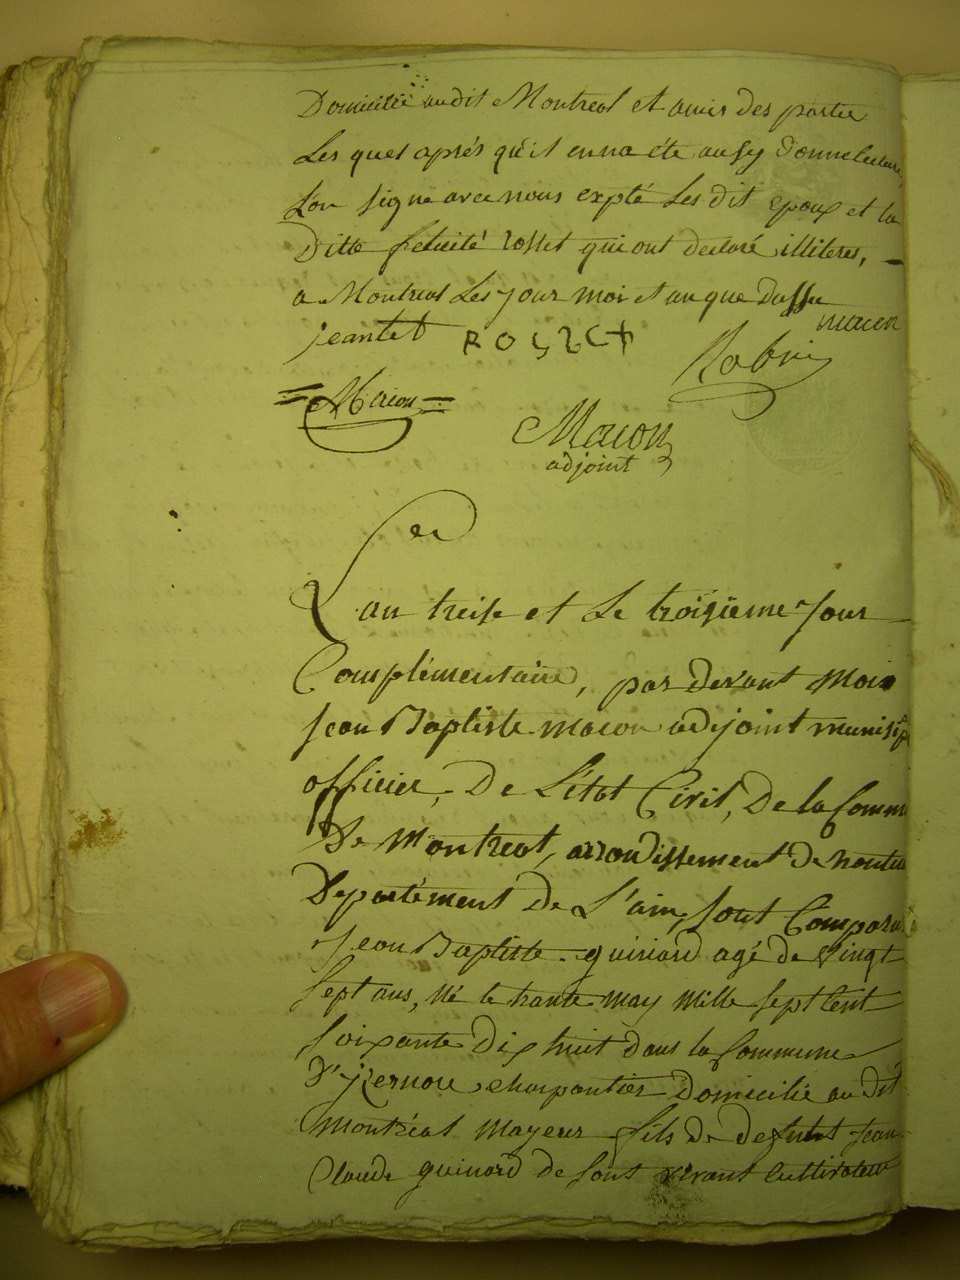 Domicilié audit Montreal et amis des partie
Les quel aprés qu'il en na éte ausy donne lecture,
Lon signe avec nous expté Les dit epoux et la
Ditte felicité rosset qui ont declaré illiteres,
a Montreal Les jour moi et an que dessu
macon
jeantet ROSSET
Robin
Macon
Macon
adjoint
Lan treise et Le troisieme Jour
Complémentaire, par devant Moi
Jean Baptiste macon adjoint munisip
officier, De L'état Civil, De la Comm
De Montreal, arrondissement De nantua
Département De L'ain, sont Comparu
Jean Baptiste guinard agé de Vingt
Sept ans, Né le trante may Mille Sept Cent
Soixante Dix huit dans la Commune
D'Izernore charpantier Domicilié au dit
Montréal Mayeur fils De defunt Jean
Claude guinard de sont vivant Cultivateur